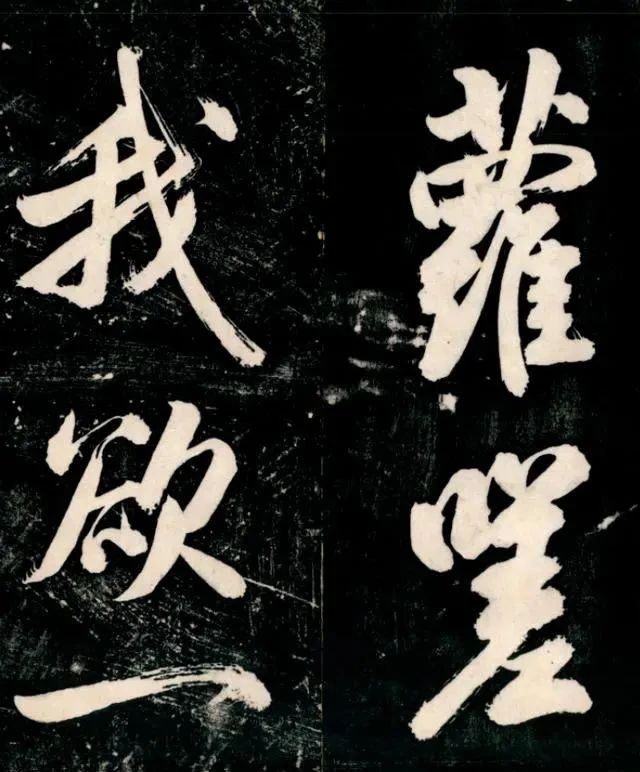 蘿嗟
我欲一